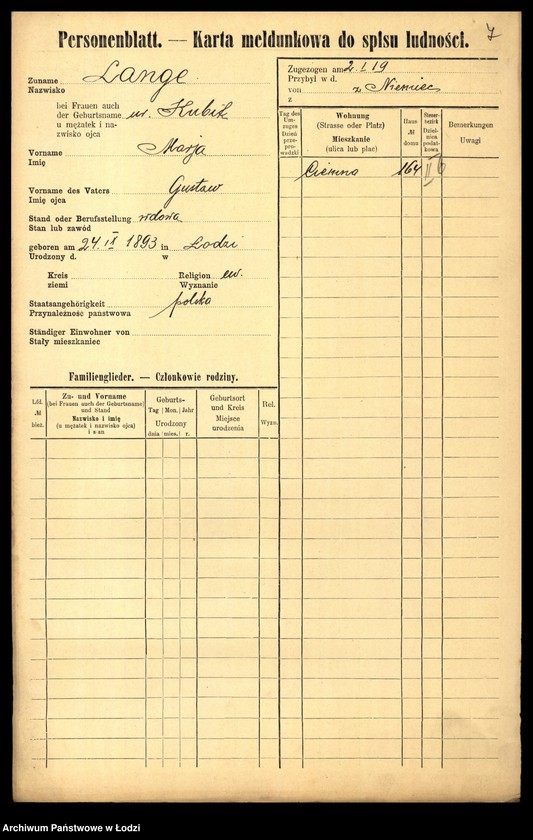 7
Personenblatt. — Karta meldunkowa do spisu ludności.
Zuname Lange
Nazwisko
bei Frauen auch
der Geburtsname ur. Kubik
u mężatek i na-
zwisko ojca
Vorname Marja
Imię
Vorname des Vaters Gustaw
Imię ojca
Stand oder Berufsstellung wdowa
Stan lub zawód
geboren am 24. IX 1893 in Łodzi
Urodzony d. w
Kreis Religion ew.
ziemi Wyznanie
Staatsangehörigkeit polska
Przynależność państwowa
Ständiger Einwohner von
Stały mieszkaniec
Zugezogen am 2. I. 19
Przybył w d.
von z Niemiec
z
Tag des
Um-
zuges
Dzień
prze-
pro-
wadzki
Wohnung
(Strasse oder Platz)
Mieszkanie
(ulica lub plac)
Haus
№
domu
Steuer-
bezirk
Dziel-
nica
podat-
kowa
Bemerkungen
Uwagi
Ciemna 164 II
Familienglieder. — Członkowie rodziny.
Lfd.
№
bież.
Zu- und Vorname
(bei Frauen auch der Geburtsname)
und Stand
Nazwisko i imię
(u mężatek i nazwisko ojca)
i stan
Geburts-
Tag Mon. Jahr
Urodzony
dnia mies. r.
Geburtsort
und Kreis
Miejsce
urodzenia
Rel.
Wyzn.
Archiwum Państwowe w Łodzi